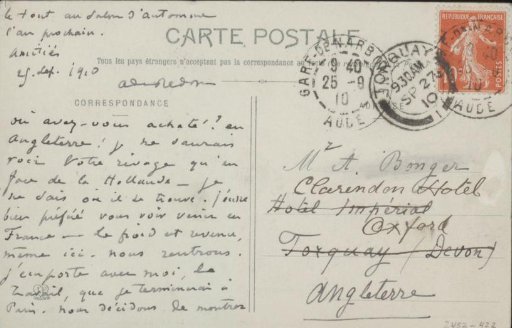 le tout au Salon d'automne
l'an prochain.
Amitiés
25 Sep. 1910
CARTE POSTALE
Tous les pays étrangers n'acceptent pas la correspondance au
CORRESPONDANCE
où avez-vous acheté? en
Angleterre! je ne saurais
voir Votre rivage qu'en
face de la Hollande — je
ne sais où il se trouve. J'eusse
bien préféré vous voir venir en
France — le froid est revenu,
même ici. nous rentrons.
j'emporte avec moi, le
travail, que je terminerai à
Paris. nous décidons de montrer
REPUBLIQUE FRANÇAISE
POSTES
10
GARE-DE-NARB
9 40
25 - 9
10
AUDE
TORQUAY
9.30 AM
SP 27
10
AUDE
Mr A. Bonger
Clarendon Hotel
Hotel Impérial
Oxford
Torquay (Devon)
Angleterre